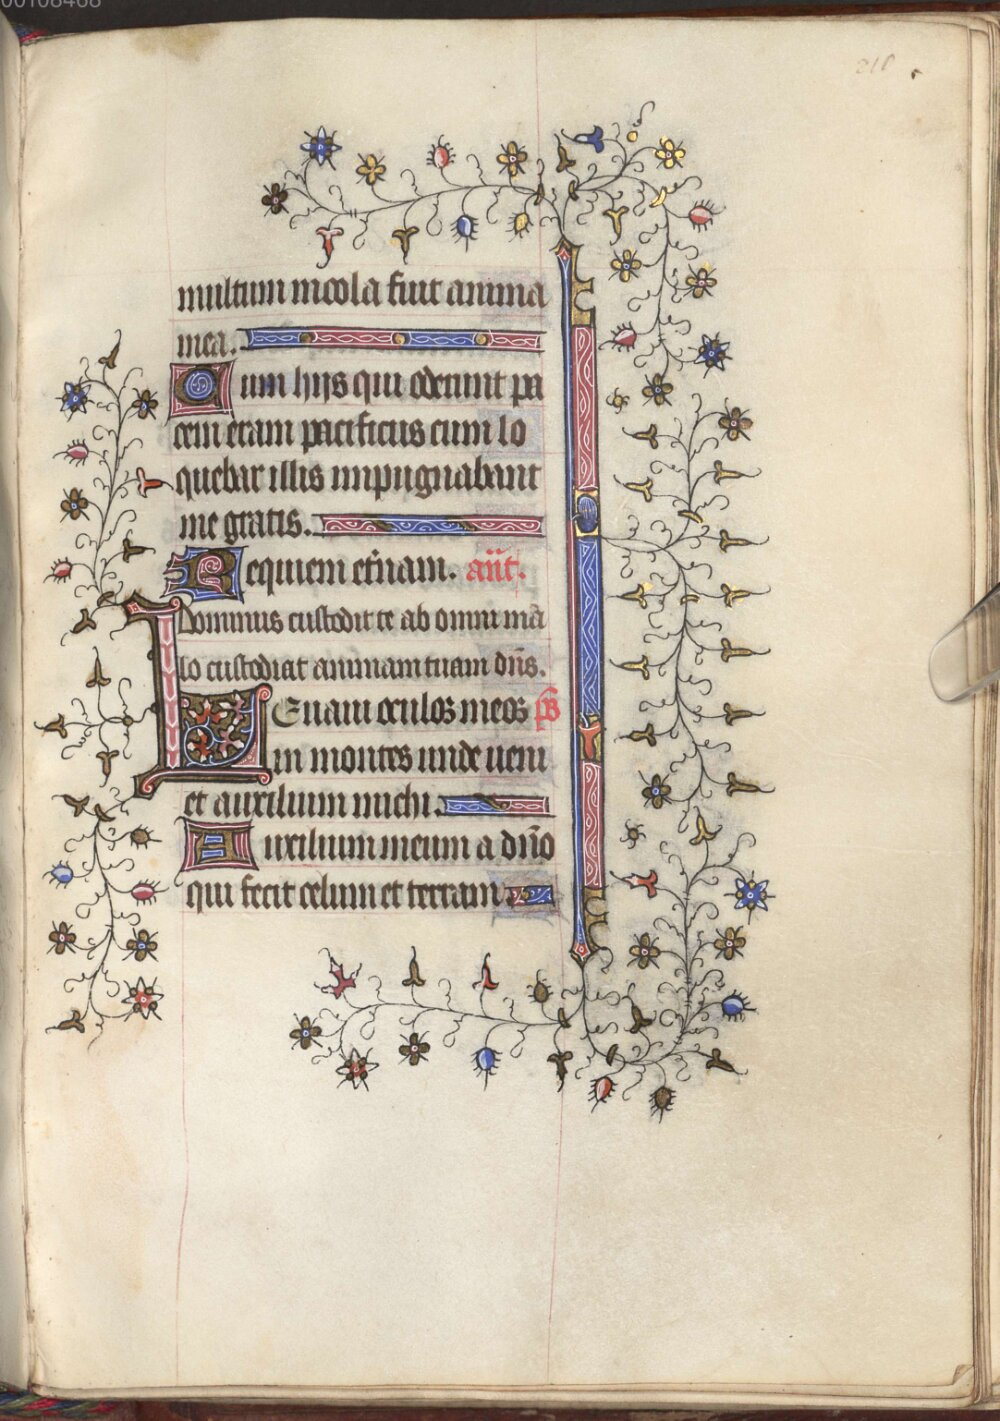 00108468
210
multum incola fuit anima
mea.
Cum hijs qui oderunt pa
cem eram pacificus cum lo
quebar illis impugnabant
me gratis.
Requiem et̄nam. an̄t.
Dominus custodit te ab omni ma
lo custodiat animam tuam dn̄s.
Leuaui oculos meos ps̄
in montes unde ueni
et auxilium michi.
Auxilium meum a dn̄o
qui fecit celum et terram